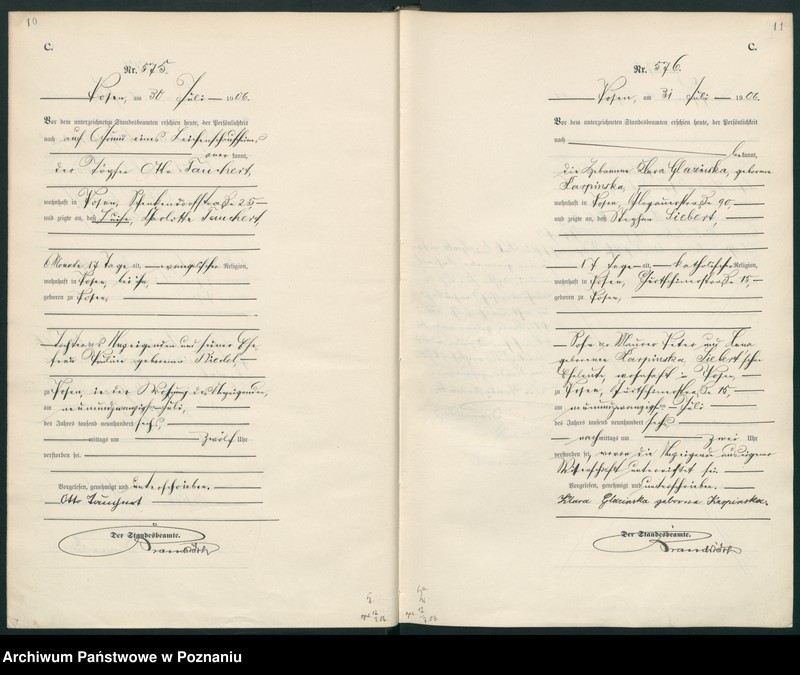 10
C.
Nr. 575.
Posen, am 30 Juli 1906.
Vor dem unterzeichneten Standesbeamten erschien heute, der Persönlichkeit
nach auf Grund eines Leichenschauscheins
kannt,
der Töpfer Otto Tauchert,
wohnhaft in Posen, Schenkendorfstraße 25
und zeigte an, daß Luise, Charlotte Tauchert,
6 Monate 17 Tage alt, evangelischer Religion,
wohnhaft in Posen, bei ihm,
geboren zu Posen,
Tochter des Anzeigenden und seiner Ehe
frau Pauline geborenen Riedel
zu Posen, in der Wohnung des Anzeigenden,
am neunundzwanzigsten Juli,
des Jahres tausend neunhundert sechs,
mittags um zwölf Uhr
verstorben sei.
Vorgelesen, genehmigt und unterschrieben.
Otto Tauchert
Der Standesbeamte.
11
C.
Nr. 576.
Posen, am 31 Juli 1906.
Vor dem unterzeichneten Standesbeamten erschien heute, der Persönlichkeit
nach
bekannt,
die Hebamme Klara Glazinska, geborene
Karpinska,
wohnhaft in Posen, Glogauerstraße 90
und zeigte an, daß Stephan Siebert,
17 Tage alt, katholischer Religion,
wohnhaft in Posen, 15,
geboren zu Posen,
Sohn der Maurer Peter und
geborene Karpinska, Siebert'schen
Eheleute, wohnhaft in Posen
zu Posen, 15,
am neunundzwanzigsten Juli
des Jahres tausend neunhundert sechs
nachmittags um zwei Uhr
verstorben sei, wovon die Anzeigende aus eigener
Wissenschaft unterrichtet sei.
Vorgelesen, genehmigt und unterschrieben.
Klara Glazinska geborene Karpinska.
Der Standesbeamte.
Archiwum Państwowe w Poznaniu